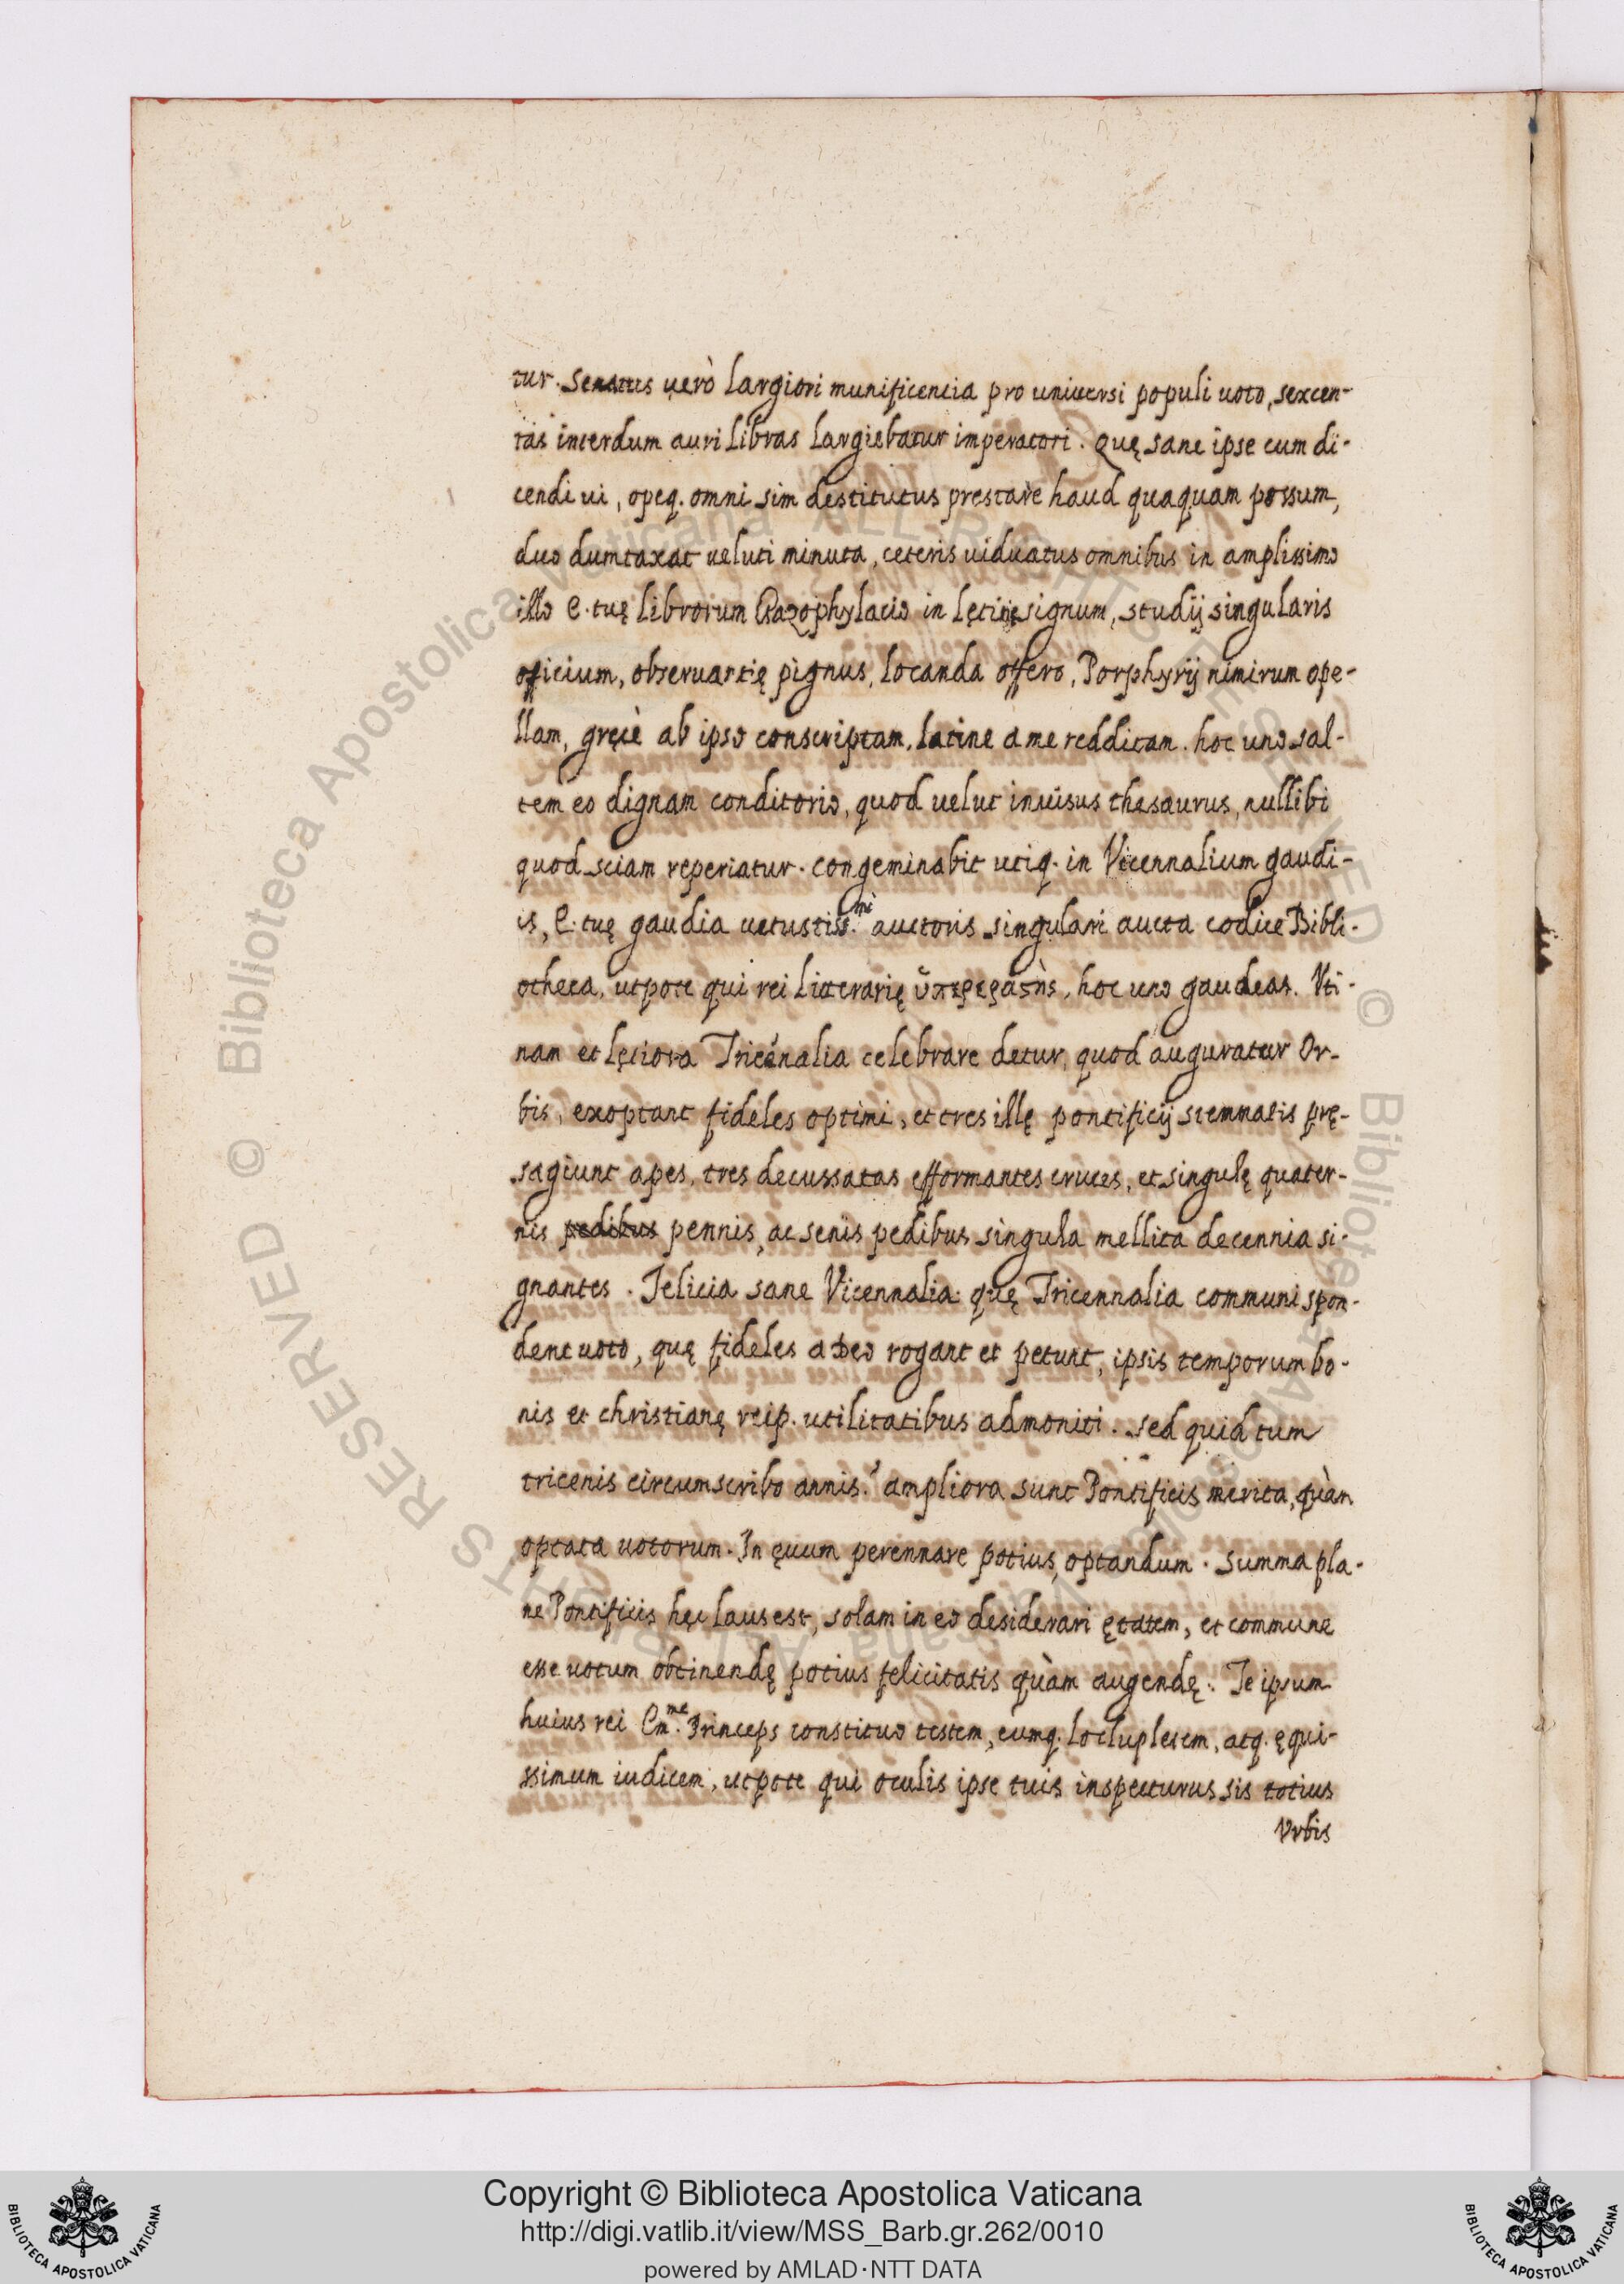 tur. Senatus uerò largiori munificentia pro uniuersi populi uoto, sexcen-
tas interdum auri libras largiebatur imperatori. Quę sane ipse cum di-
cendi ui, opeq. omni sim destitutus prestare haud quaquam possum,
duo dumtaxat ueluti minuta, ceteris uiduatus omnibus in amplissimo
illo E. tuę librorum Gazophylacio in lętitię signum, studij singularis
officium, obseruantię pignus, locanda offero, Porphyrij nimirum ope-
llam, gręcè ab ipso conscriptam, latine a me redditam. hoc uno sal-
tem eo dignam conditorio, quod uelut inuisus thesaurus, nullibi
quod sciam reperiatur. congeminabit utiq. in Vicennalium gaudi-
is, E. tuę gaudia uetustiss.mi auctoris singulari aucta codice Bibli-
otheca, utpote qui rei litterarię, hoc uno gaudeas. Vti-
nam et lętiora Tricénalia celebrare detur, quod auguratur Or-
bis, exoptant fideles optimi, et tres illę pontificij stemmatis prę-
sagiunt apes, tres decussatas efformantes cruces, et singulę quater-
nis pedibus pennis, ac senis pedibus singula mellita decennia si-
gnantes. Felicia sane Vicennalia: quę Tricennalia communi spon-
dent uoto, quę fideles a Deo rogant et petunt, ipsis temporum bo-
nis et christianę reip. utilitatibus admoniti. Sed quid tum
tricenis circumscribo annis? ampliora sunt Pontificis merita, quàm
optata uotorum. In ęuum perennare potius, optandum. Summa pla-
ne Pontificis hęc laus est, solam in eo desiderari ętatem, et commune
esse uotum obtinendę potius felicitatis quàm augendę. Te ipsum
huius rei Em.me Princeps constituo testem, eumq. locluplesem, atq. ęqui-
ssimum iudicem, utpote qui oculis ipse tuis inspecturus sis totius
Vrbis
Copyright © Biblioteca Apostolica Vaticana
http://digi.vatlib.it/view/MSS_Barb.gr.262/0010
powered by AMLAD·NTT DATA